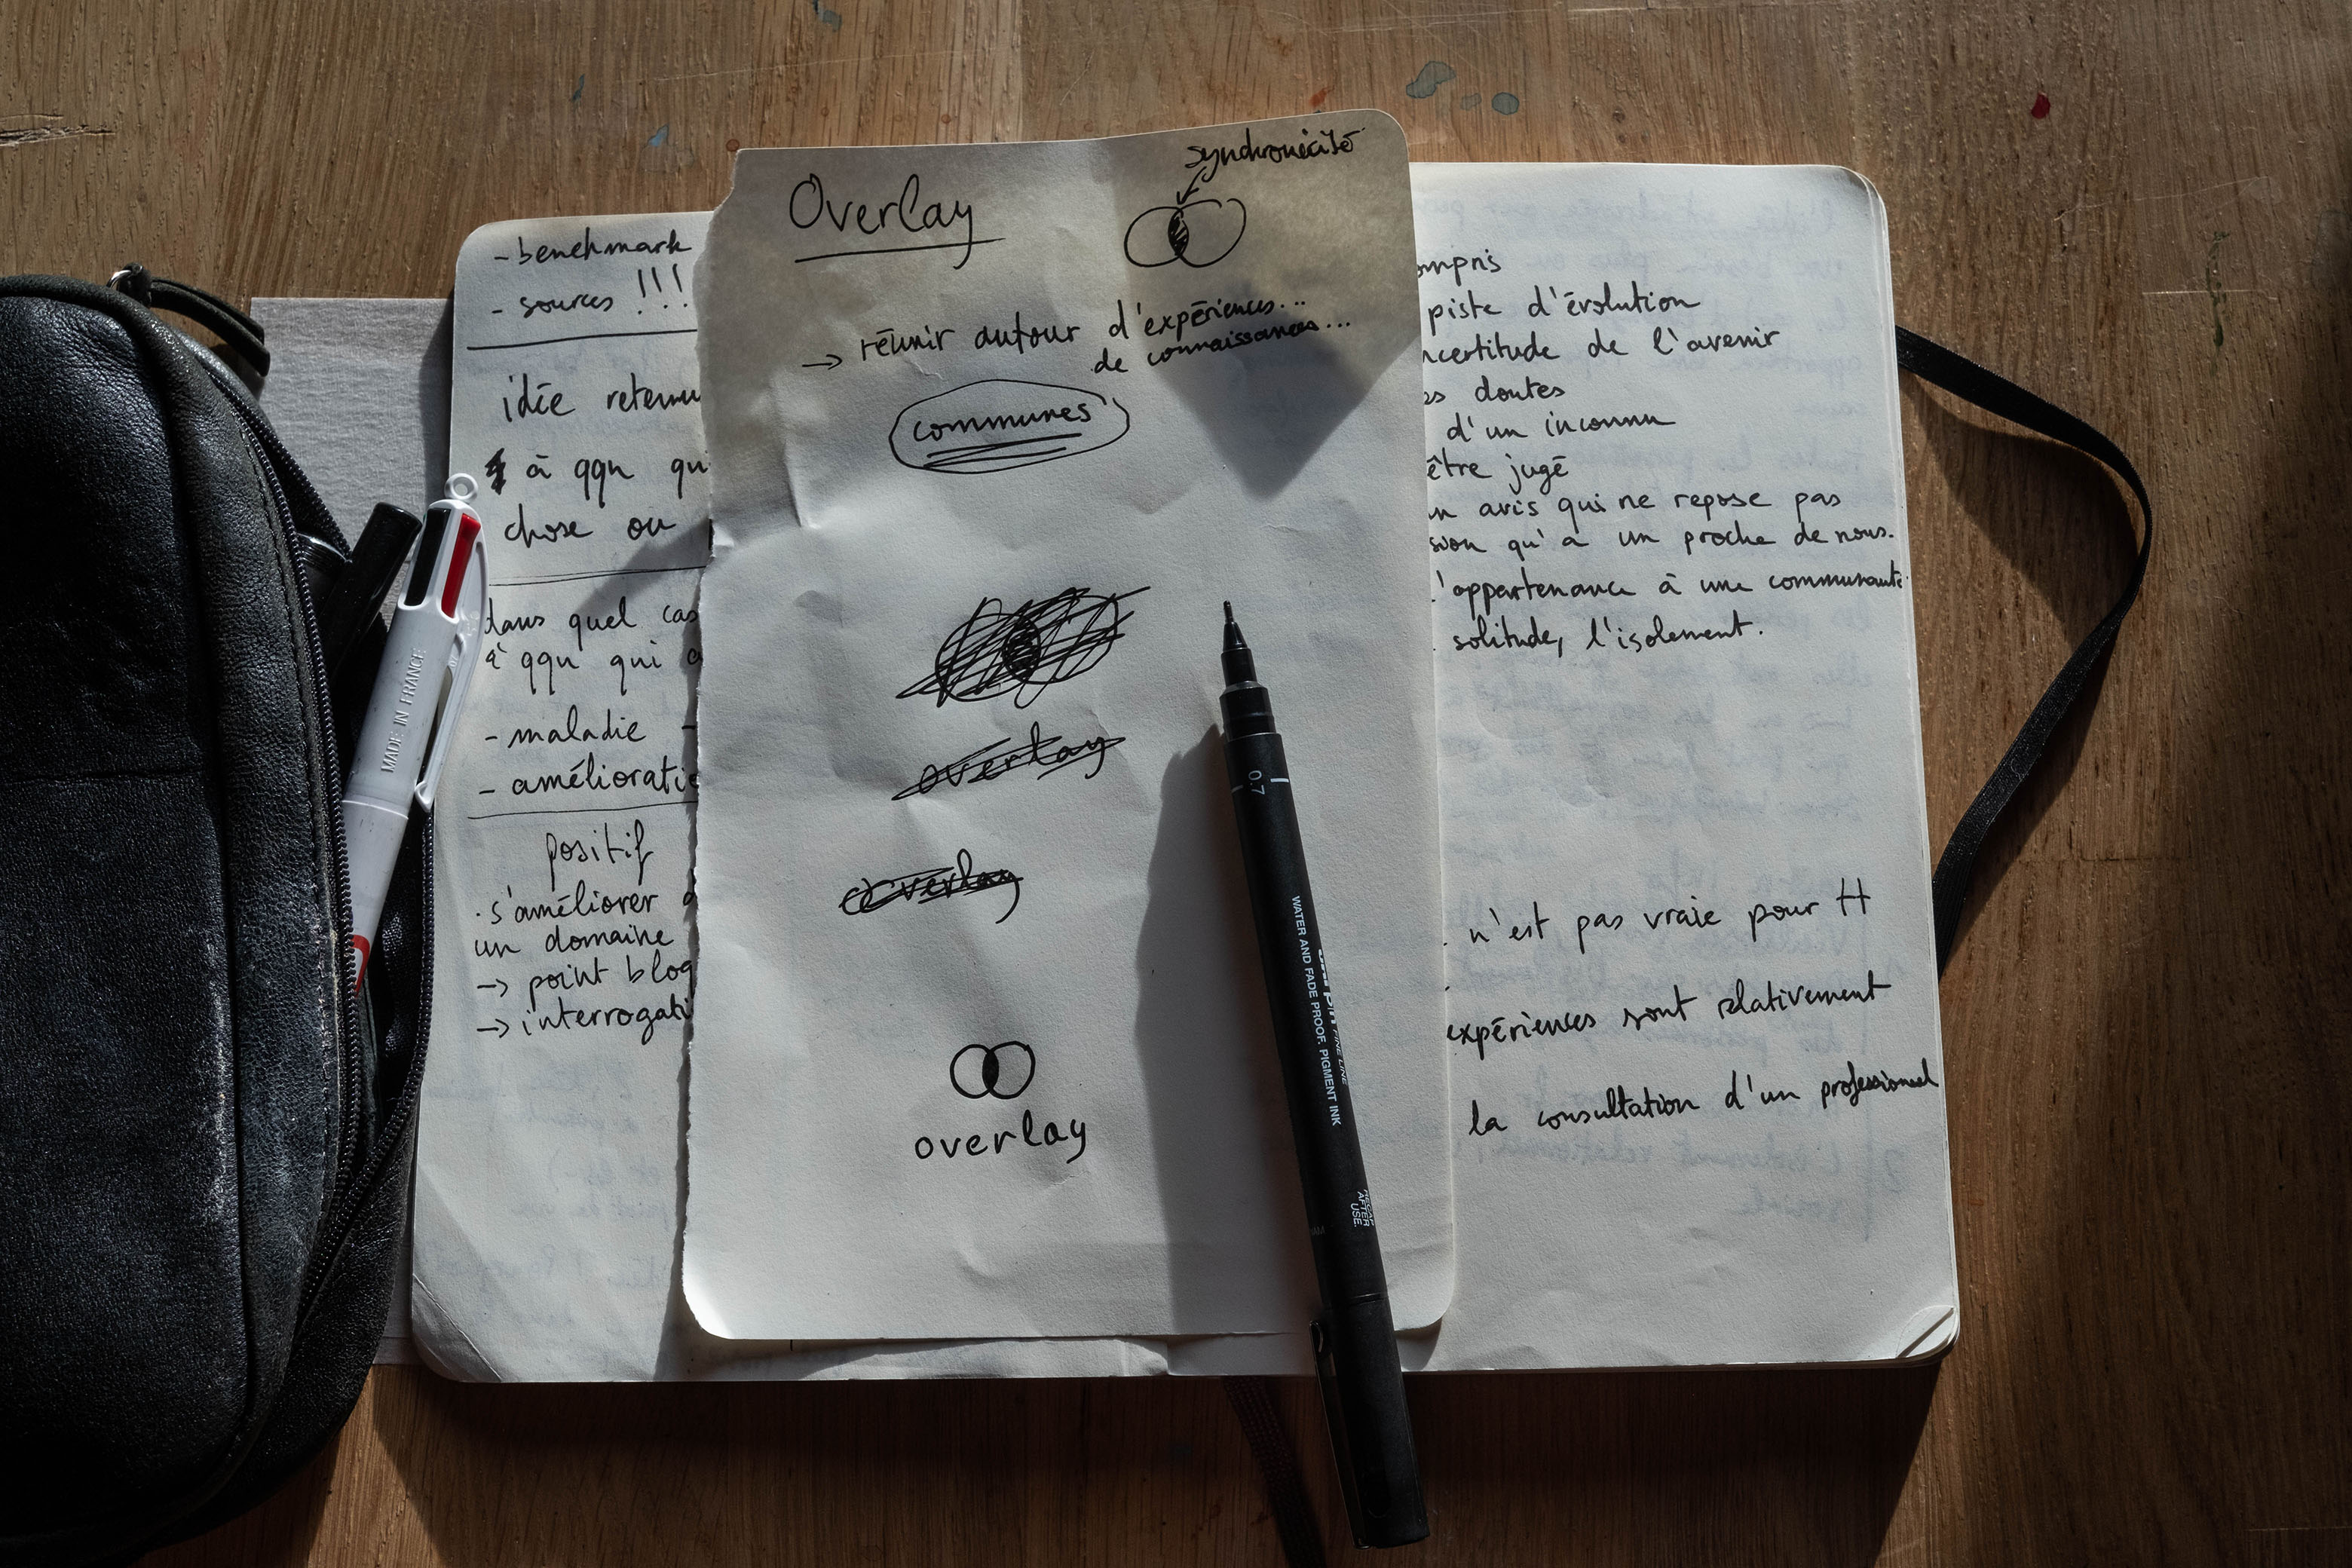 - benchmark
- sources !!!
idée retenu
à qqn qui
chose ou
dans quel cas
à qqn qui a
- maladie -
- amélioratio
positif
. s'améliorer d
un domaine
→ point bloq
→ interrogati
synchronicité
Overlay
→ réunir autour d'expériences...
de connaissances...
communes
overlay
overlay
overlay
ompris
piste d'évolution
ncertitude de l'avenir
es doutes
d'un inconnu
être jugé
un avis qui ne repose pas
sion qu'a un proche de nous.
l'appartenance à une communauté
solitude, l'isolement.
n'est pas vraie pour tt
expériences sont relativement
la consultation d'un professionnel
MADE IN FRANCE
0.7
FINE LINE
WATER AND FADE PROOF. PIGMENT INK
RECAP
AFTER
USE.